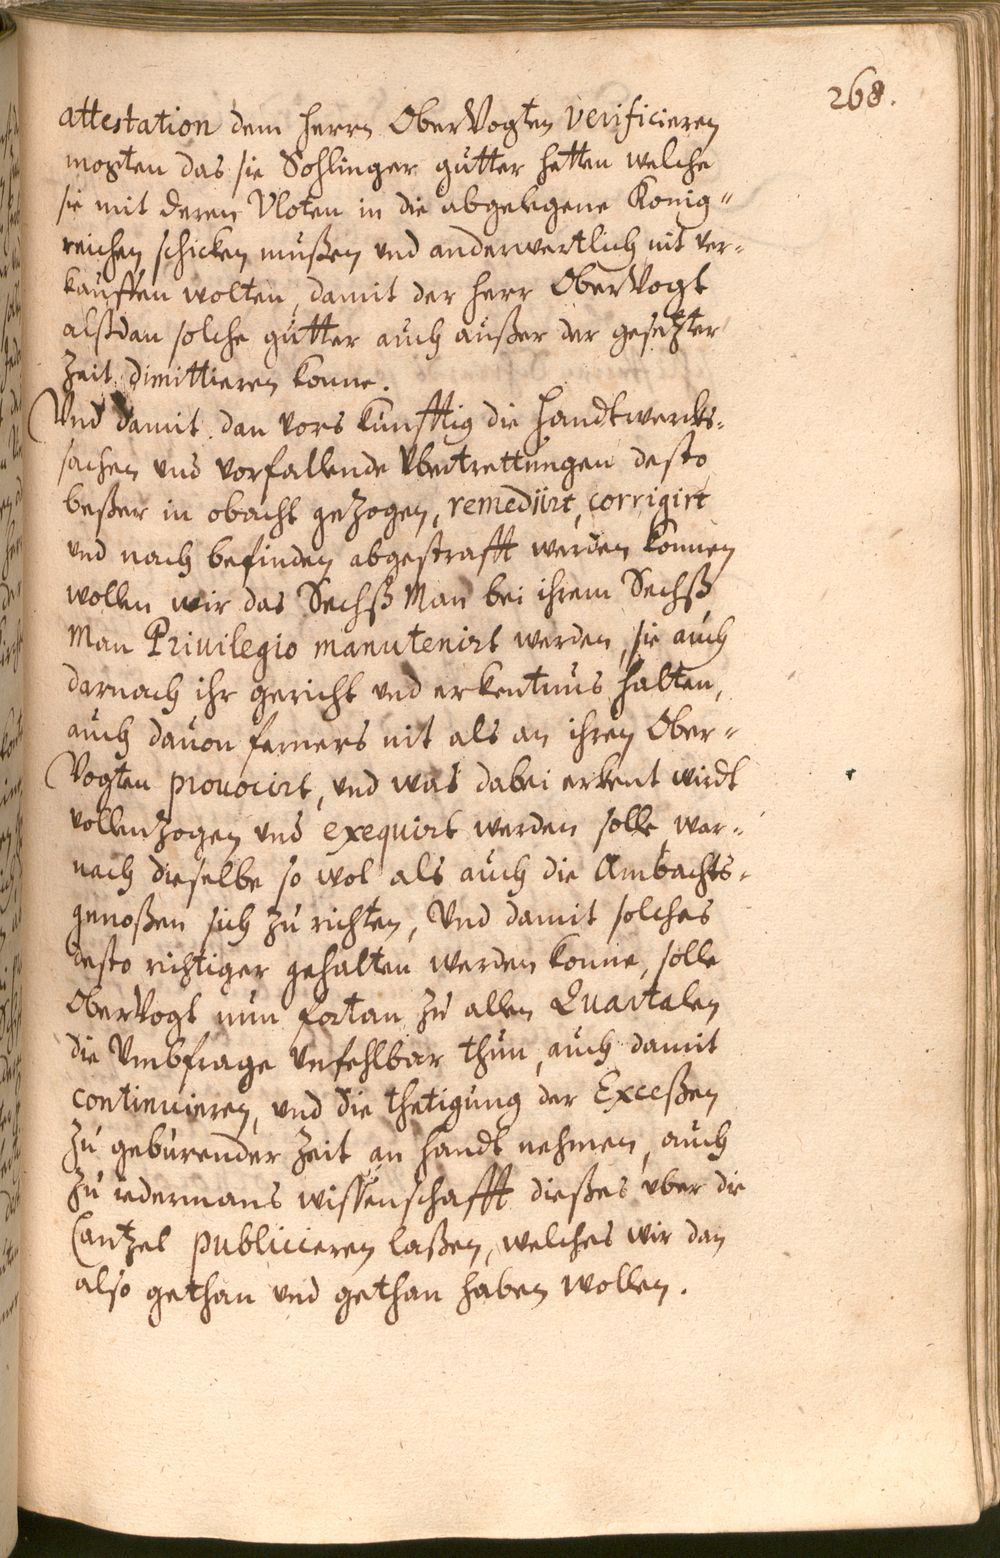 268.
attestation dem herrn OberVogten verificieren
mogten das sie Sohlinger gütter hetten welche
sie mit deren Vloten in die abgelegene König"
reichen schicken müßen und anderwertlich nit ver=
kauffen wolten, damit der herr OberVogt
alßdan solche gütter auch außer der gesetzter
Zeit dimittieren konne.
Und damit dan vors künfftig die handtwercks=
sachen und vorfallende Ubertrettungen desto
beßer in obacht gezogen, remediirt, corrigirt
und nach befinden abgestrafft werden können
wollen wir das Sechß Man bei ihrem Sechß
Man Priuilegio manutenirt werden, sie auch
darnach ihr gericht und erkentnus halten,
auch dauon ferners nit als an ihren Ober=
Vogten prouocirt, und was dabei erkent wirdt
vollenzogen und exequirt werden solle war=
nach dieselbe so wol als auch die Ambachts=
genoßen sich zu richten, Und damit solches
desto richtiger gehalten werden konne, solle
OberVogt nun fortan zu allen Quartalen
die Umbfrage unfehlbar thun, auch damit
continuieren, und die thetigung der Exceßen
zu gebürender Zeit an handt nehmen, auch
zu iedermans wissenschafft dießes uber die
Cantzel publicieren laßen, welches wir dan
also gethan und gethan haben wollen.